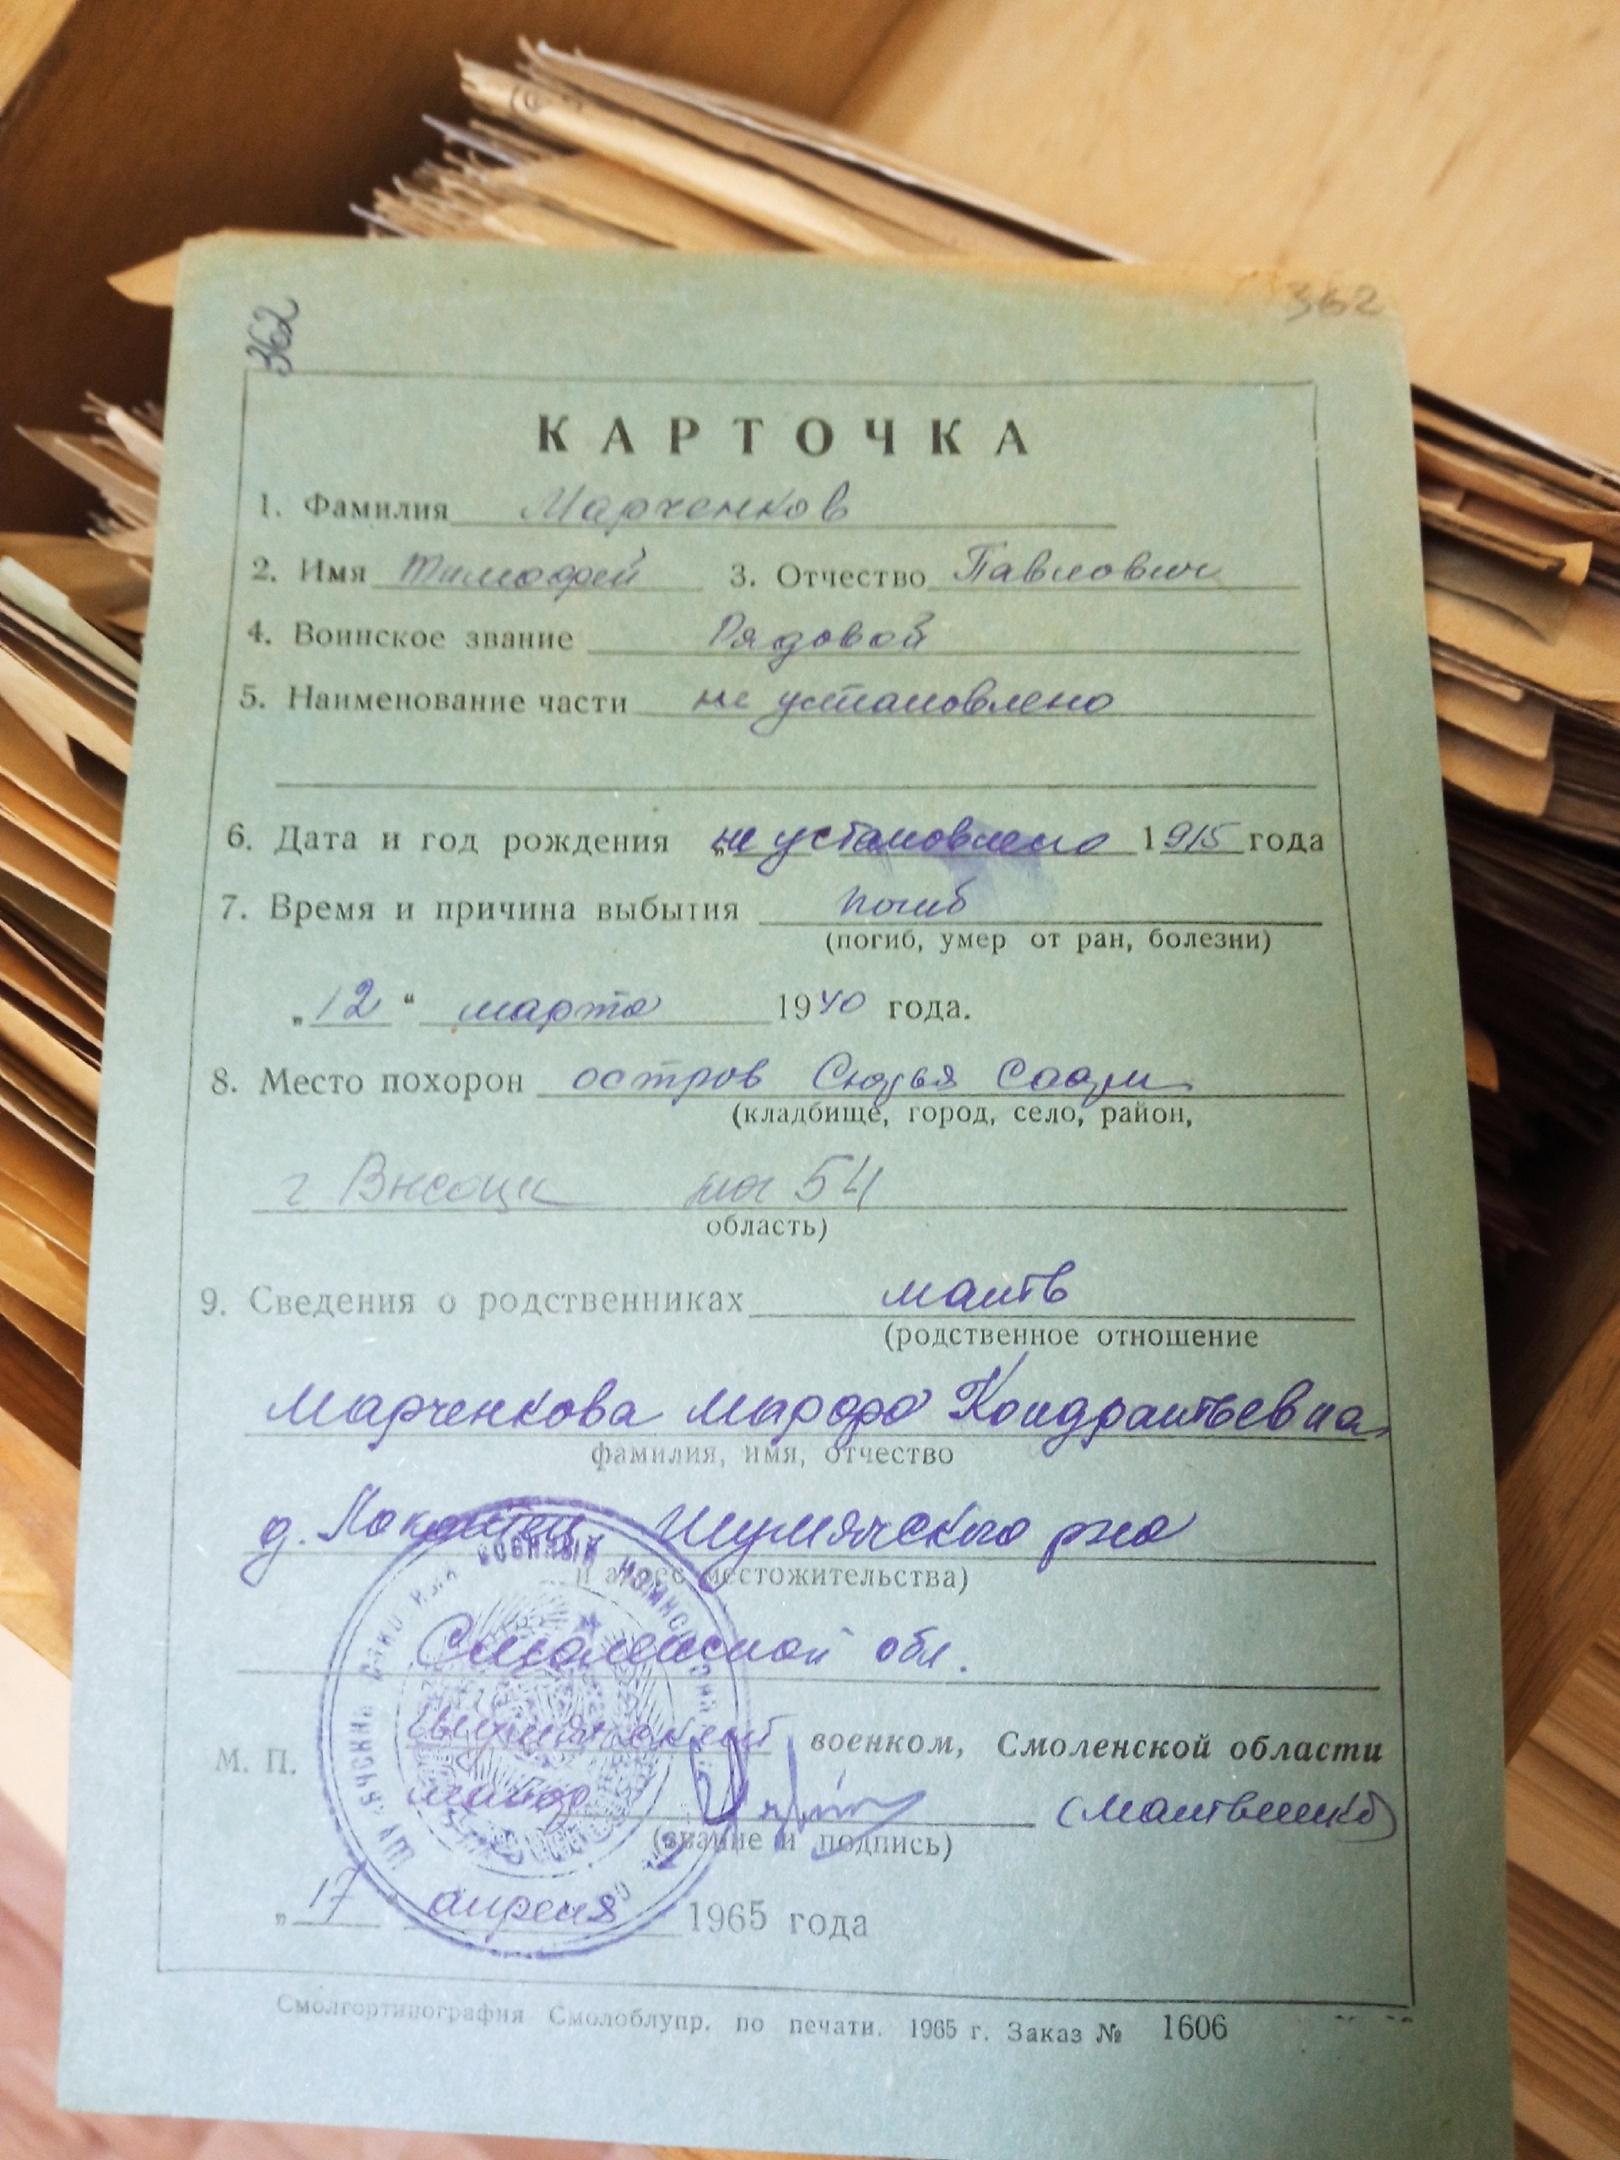 362
362
КАРТОЧКА
1. Фамилия Марченков
2. Имя Тимофей 3. Отчество Павлович
4. Воинское звание Рядовой
5. Наименование части не установлено
6. Дата и год рождения „не установлено 1915 года
7. Время и причина выбытия погиб
(погиб, умер от ран, болезни)
„12“ марта 1940 года.
8. Место похорон остров Сюдья Саари
(кладбище, город, село, район,
г 54
область)
9. Сведения о родственниках мать
(родственное отношение
Марченкова Марфа Кондратьевна,
фамилия, имя, отчество
д. Шумячского р-на
и адрес местожительства)
Смоленской обл.
М. П. Шумячский военком, Смоленской области
майор (Матвеенко)
(звание и подпись)
„17“ апреля 1965 года
Смолгортипография Смолоблупр. по печати. 1965 г. Заказ № 1606